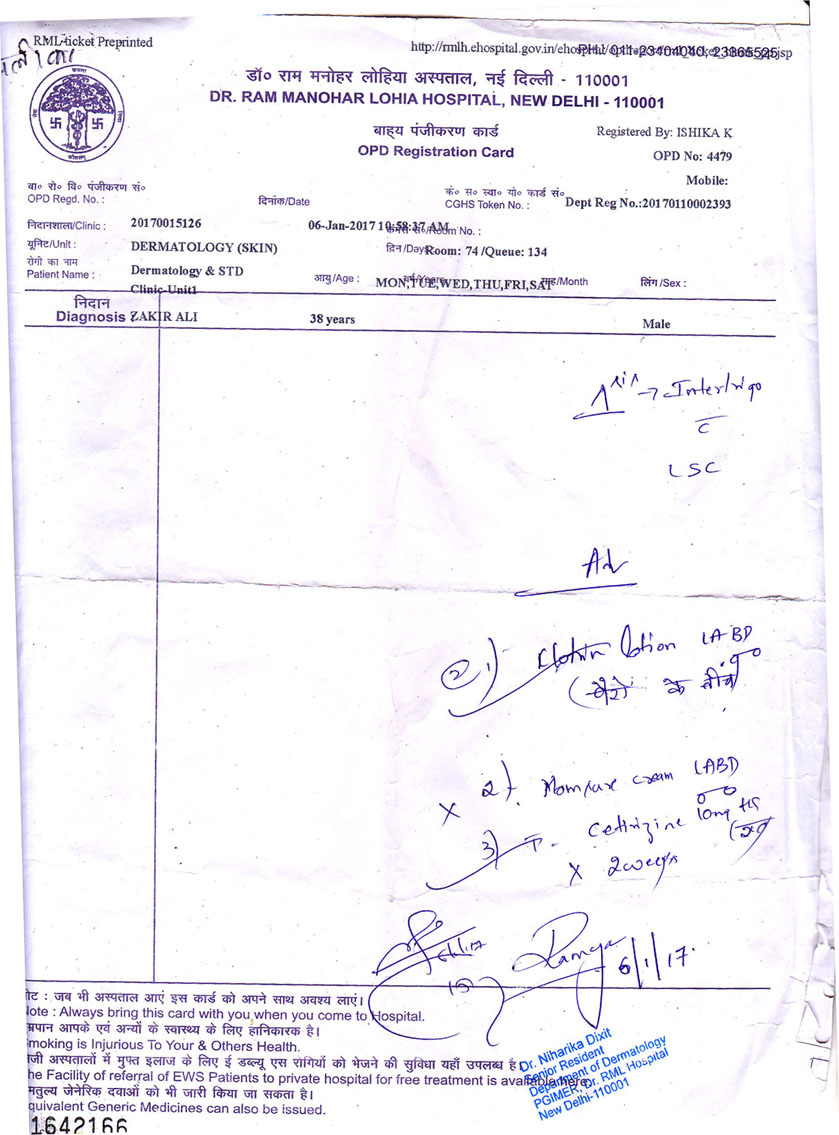 RML-ticket Preprinted
http://rmlh.ehospital.gov.in/
PH: 011-23404040, 23365525
डॉ० राम मनोहर लोहिया अस्पताल, नई दिल्ली - 110001
DR. RAM MANOHAR LOHIA HOSPITAL, NEW DELHI - 110001
बाह्य पंजीकरण कार्ड
Registered By: ISHIKA K
OPD Registration Card
OPD No: 4479
Mobile:
बा० रो० वि० पंजीकरण सं०
OPD Regd. No. :
दिनांक/Date
कें० स० स्वा० यो० कार्ड सं०
CGHS Token No. :
Dept Reg No.:20170110002393
निदानशाला/Clinic :
20170015126
06-Jan-2017 10:58:37 AM
Room No. :
यूनिट/Unit :
DERMATOLOGY (SKIN)
दिन/Days
Room: 74 /Queue: 134
रोगी का नाम
Patient Name :
Dermatology & STD
Clinic-Unit1
आयु/Age :
MON,TUE,WED,THU,FRI,SAT
/Month
लिंग/Sex :
निदान
Diagnosis
ZAKIR ALI
38 years
Male
→ Intertrigo
c
LSC
Adv
1) lotion LABD
(पैरो के नीचे)
2) cream LABD
3) T. Cetirizine 10mg HS
X 2 weeks
6/1/17
6/1/17.
नोट : जब भी अस्पताल आएं इस कार्ड को अपने साथ अवश्य लाएं।
Note : Always bring this card with you when you come to Hospital.
आपके एवं अन्यों के स्वास्थ्य के लिए हानिकारक है।
moking is Injurious To Your & Others Health.
अस्पतालों में मुफ्त इलाज के लिए ई डब्ल्यू एस रोगियों को भेजने की सुविधा यहाँ उपलब्ध है
he Facility of referral of EWS Patients to private hospital for free treatment is available here.
जेनेरिक दवाओं को भी जारी किया जा सकता है।
quivalent Generic Medicines can also be issued.
1642166
Dr. Niharika Dixit
Senior Resident
Department of Dermatology
PGIMER, Dr. RML Hospital
New Delhi-110001